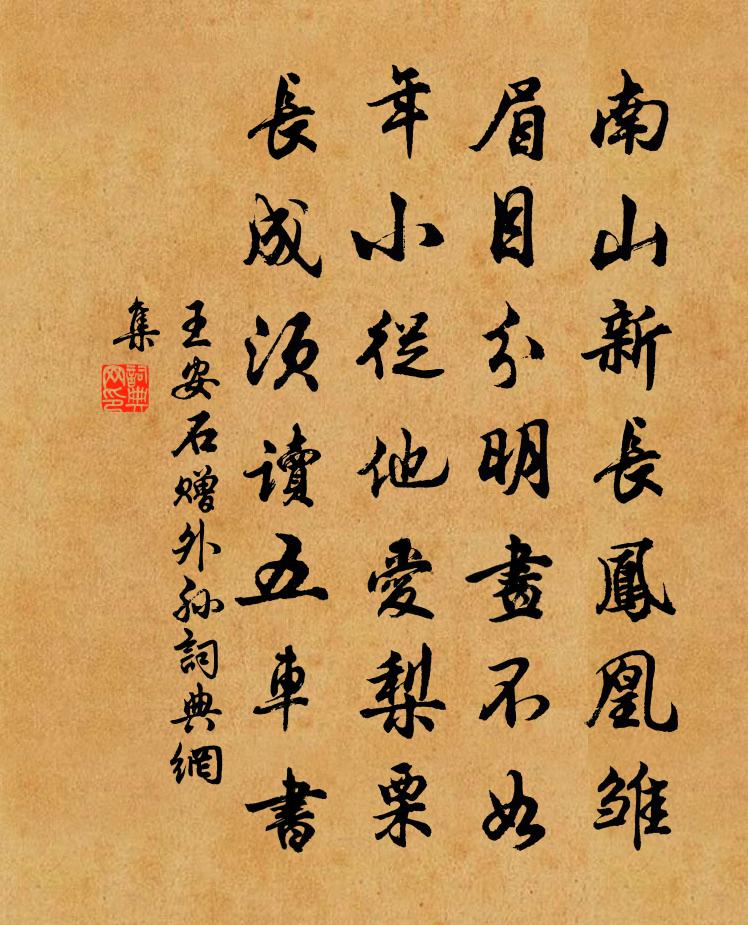 南山新長鳳凰雏
眉目分明畫不如
年小從他愛梨栗
長成須讀五車書
王安石赠外孙詞典網
集
詞典
网印